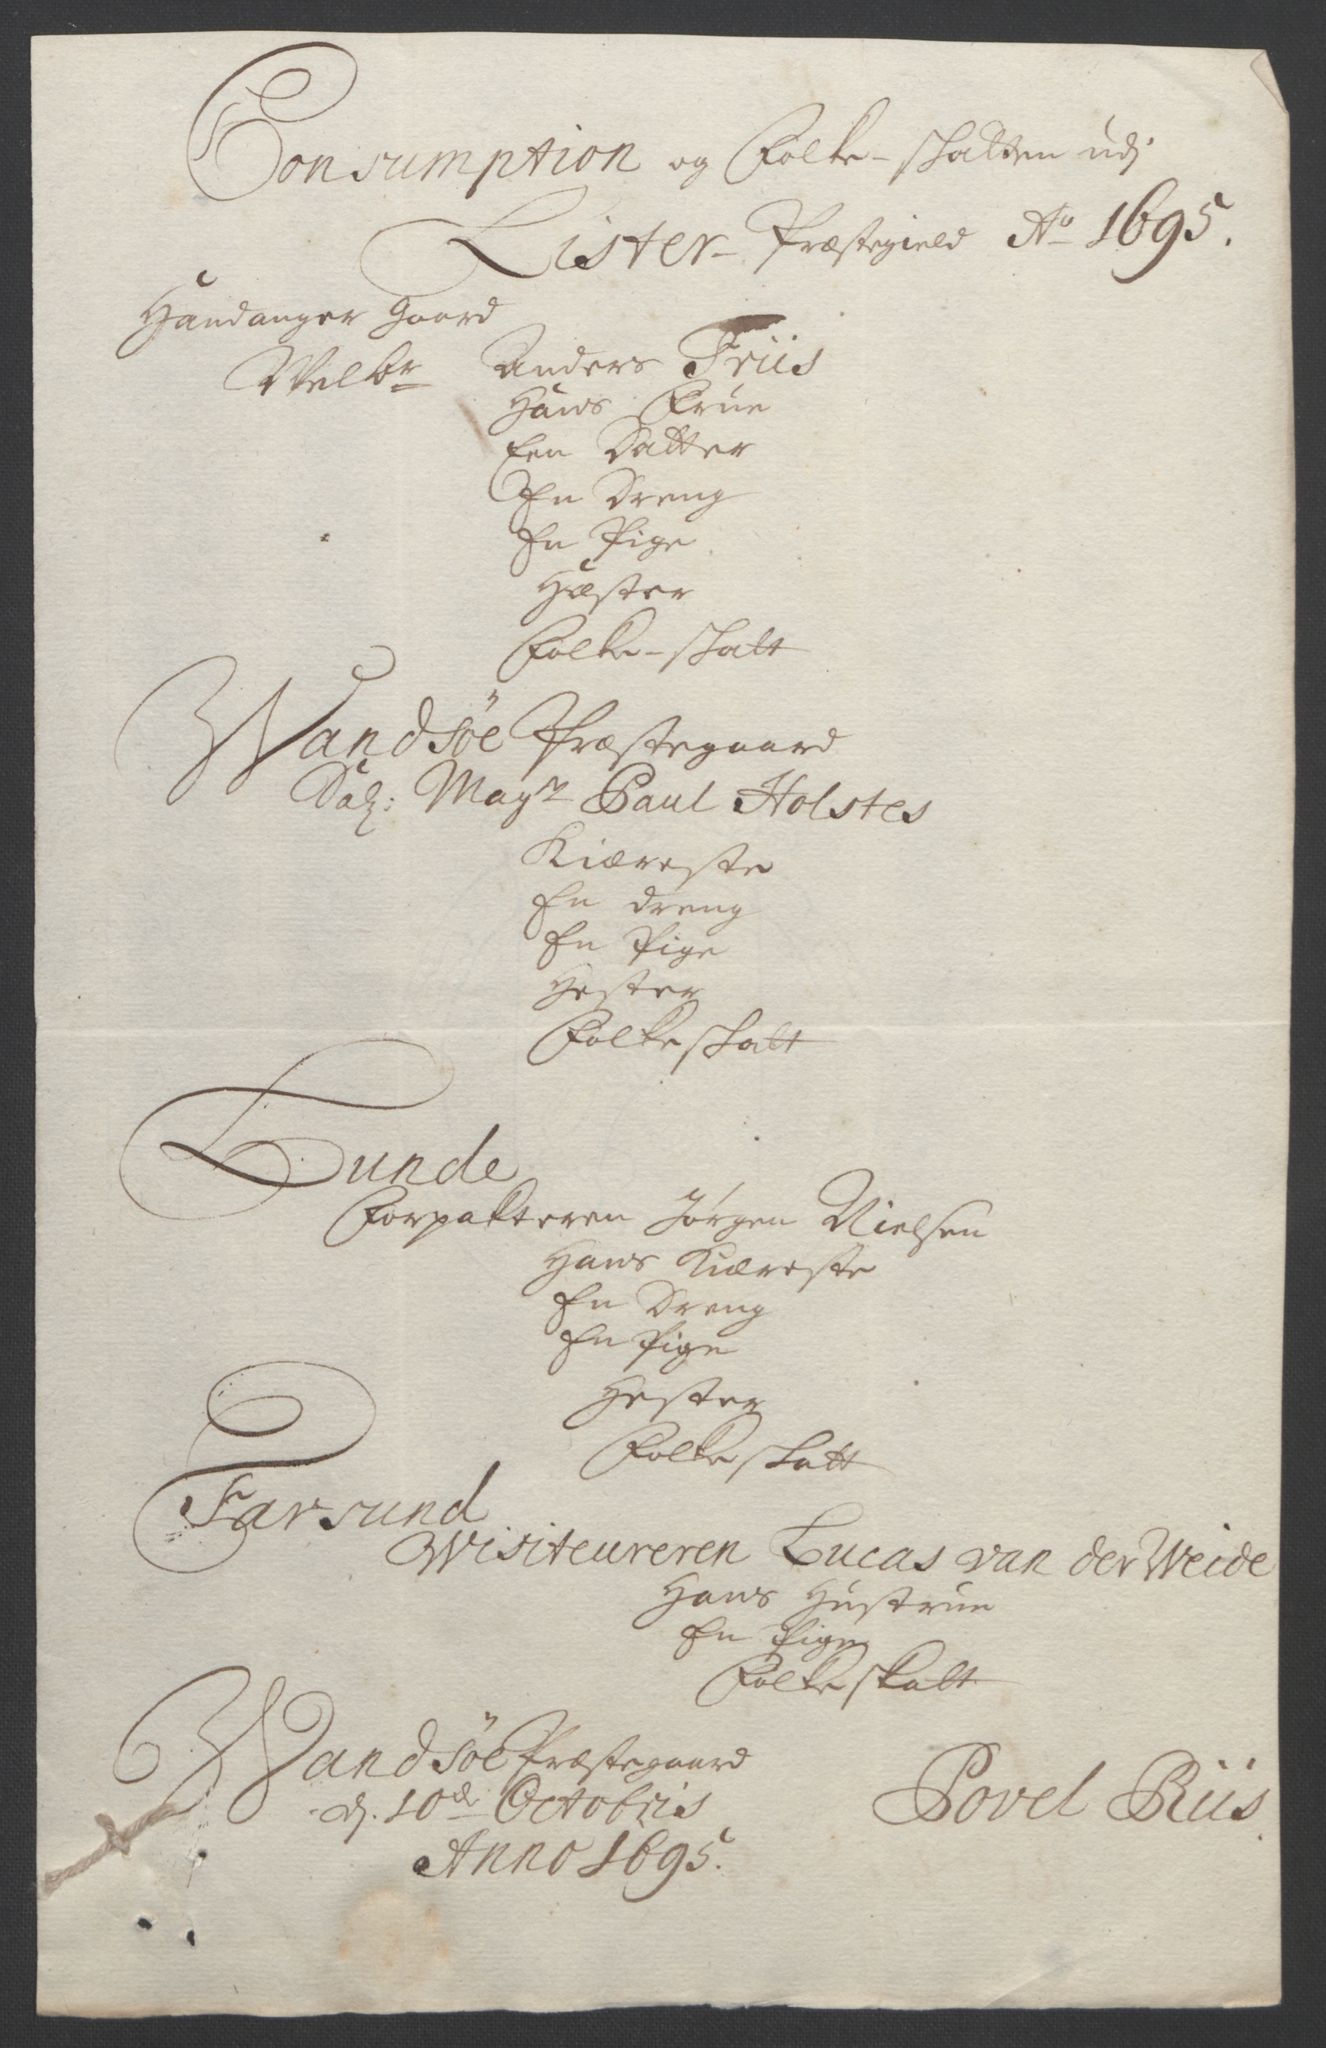 Consumption og Folke-skatten udj
Lister Præstegield Aº 1695.
Handanger Gaard
Welbr Anders Friis
Hans Frue
Een Datter
En Dreng
En Pige
Hæster
Folke-skatt
Wandsöe Præstegaard
Sal: Magr Paul Holstes
Kiæreste
En dreng
En Pige
Hester
Folkeskatt
Lunde
Forpakteren Jørgen Nielsen
Hans Kiæreste
En Dreng
En Pige
Hester
Folkeskatt
Farsund
Wisiteureren Lucas van der Weide
Hans Hustrue
En Pige
Folkeskatt
Wandsöe Præstegaard
d. 10de Octobris
Anno 1695.
Povel Riis